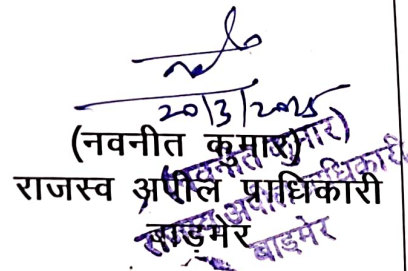 20/3/2025
(नवनीत कुमार)
राजस्व अपील प्राधिकारी
बाड़मेर
(नवनीत कुमार)
राजस्व अपील प्राधिकारी
बाड़मेर